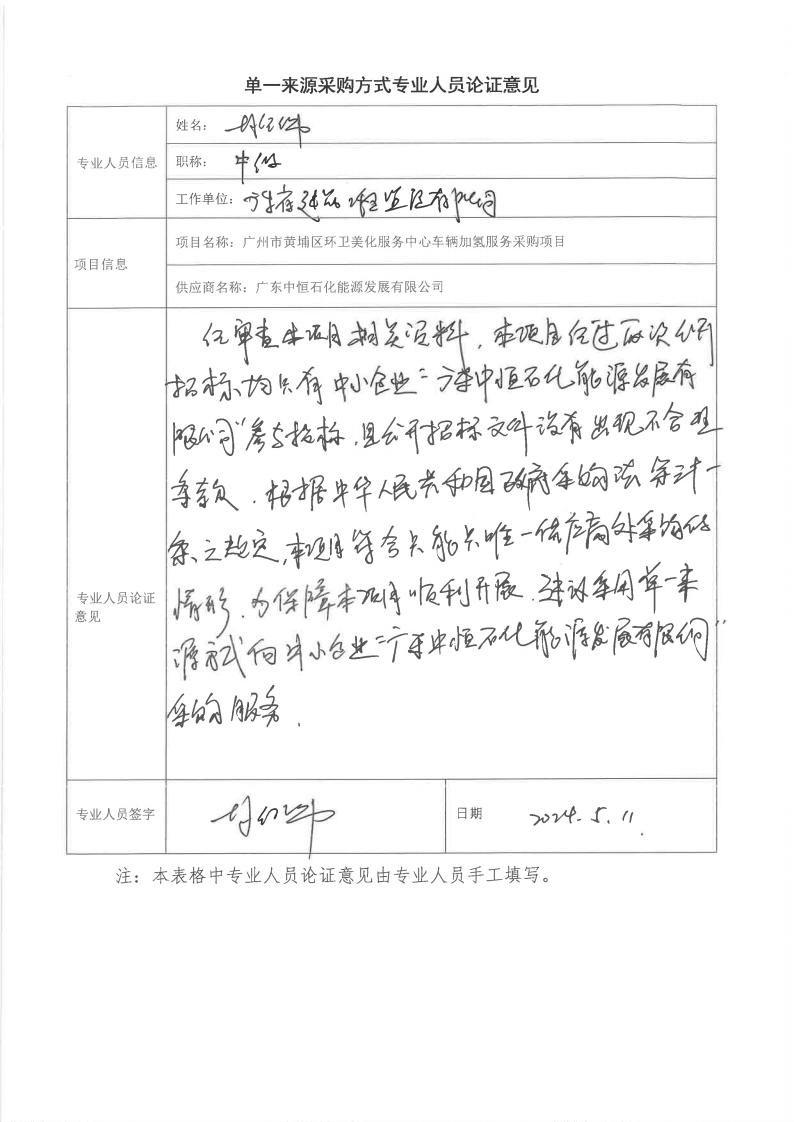 单一来源采购方式专业人员论证意见
专业人员信息
姓名：
职称： 中级
工作单位： 建设 监理有限公司
项目信息
项目名称：广州市黄埔区环卫美化服务中心车辆加氢服务采购项目
供应商名称：广东中恒石化能源发展有限公司
专业人员论证
意见
经审查本项目相关资料，本项目经过两次公开
招标均只有中小企业“广东中恒石化能源发展有
限公司”参与投标，且公开招标文件没有出现不合理
条款，根据中华人民共和国政府采购法第三十一
条之规定，本项目符合只能从唯一供应商处采购的
情形，为保障本项目顺利开展，建议采用单一来
源方式向中小企业“广东中恒石化能源发展有限公司”
采购服务．
专业人员签字
日期
2024.5.11.
注：本表格中专业人员论证意见由专业人员手工填写。